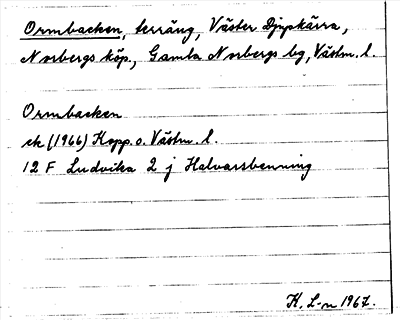 Ormbacken, terräng, Väster Djupkärra,
Norbergs köp., Gamla Norbergs bg, Västm. l.
Ormbacken
ek (1966) Kopp. o. Västm. l.
12 F Ludvika 2 j Halvarsbenning
K. L-n 1967.